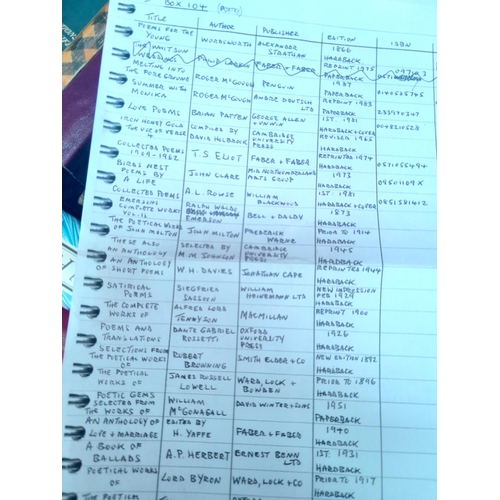 BOX 104 (POETRY)
TITLE AUTHOR PUBLISHER EDITION ISBN
POEMS FOR THE YOUNG WORDSWORTH ALEXANDER STRATHAN 1866 HARDBACK
FABER + FABER REPRINT 1975 PAPERBACK
MELTING INTO THE FOREGROUND ROGER McGOUGH PENGUIN 1987 PAPERBACK
SUMMER WITH MONIKA ROGER McGOUGH ANDRE DEUTSCH LTD REPRINT 1983 PAPERBACK 0140585745
LOVE POEMS BRIAN PATTEN GEORGE ALLEN + UNWIN 1ST. 1981
IRON HONEY GOLD THE USE OF VERSE 4 COMPILED BY DAVID HOLBROOK CAMBRIDGE UNIVERSITY PRESS HARDBACK + COVER REVISED 1965
COLLECTED POEMS 1909-1962 T.S ELIOT FABER + FABER HARDBACK REPRINTED 1974
BIRDS NEST POEMS BY JOHN CLARE MID NORTHUMBERLAND ARTS GROUP HARDBACK 1973 0571055494
A LIFE COLLECTED POEMS A.L. ROWSE WILLIAM BLACKWOOD HARDBACK 1ST. 1981
EMERSONS COMPLETE WORKS RALPH WALDO EMERSON BELL + DALDY HARDBACK + COVER 1873 0851581412
THE POETICAL WORKS OF JOHN MILTON JOHN MILTON FREDERICK WARNE HARDBACK PRIOR TO 1914
THESE ALSO AN ANTHOLOGY SELECTED BY M.M JOHNSON CAMBRIDGE UNIVERSITY PRESS HARDBACK 1945
AN ANTHOLOGY OF SHORT POEMS W.H. DAVIES JONATHAN CAPE HARDBACK REPRINTED 1944
SATIRICAL POEMS SIEGFRIED SASSOON WILLIAM HEINEMANN LTD HARDBACK NEW IMPRESSION FEB 1929
THE COMPLETE WORKS OF ALFRED LORD TENNYSON MACMILLAN HARDBACK REPRINT 1900
POEMS AND TRANSLATIONS DANTE GABRIEL ROSSETTI OXFORD UNIVERSITY PRESS HARDBACK 1926
SELECTIONS FROM THE POETICAL WORKS OF ROBERT BROWNING SMITH ELDER + CO HARDBACK NEW EDITION 1892
THE POETICAL WORKS OF JAMES RUSSELL LOWELL WARD, LOCK + BOWDEN HARDBACK PRIOR TO 1896
POETIC GEMS SELECTED FROM THE WORKS OF WILLIAM McGONAGALL DAVID WINTER + SONS HARDBACK 1951
AN ANTHOLOGY OF LOVE + MARRIAGE EDITED BY H. YAFFE FABER + FABER PAPERBACK 1940
A BOOK OF BALLADS A.P. HERBERT ERNEST BENN LTD HARDBACK 1ST. 1931
POETICAL WORKS OF LORD BYRON WARD, LOCK + CO HARDBACK PRIOR TO 1917
THE POETICAL OXFORD HARDBACK